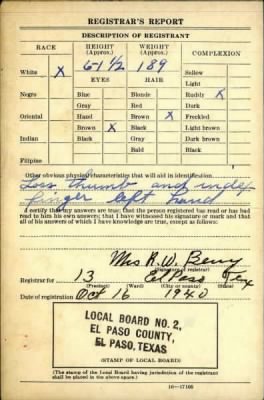 REGISTRAR'S REPORT
DESCRIPTION OF REGISTRANT
RACE
HEIGHT (Approx.)
WEIGHT (Approx.)
COMPLEXION
White X
6-1 1/2
189
Sallow
EYES
HAIR
Light
Negro
Blue
Blonde
Ruddy X
Gray
Red
Dark
Oriental
Hazel
Brown X
Freckled
Brown X
Black
Light brown
Indian
Black
Gray
Dark brown
Bald
Black
Filipino
Other obvious physical characteristics that will aid in identification
Loss thumb and index
finger left hand
I certify that my answers are true; that the person registered has read or has had
read to him his own answers; that I have witnessed his signature or mark and that
all of his answers of which I have knowledge are true, except as follows:
Mrs R. W. Berry
(Signature of registrar)
Registrar for 13 El Paso Tex
(Precinct) (Ward) (City or county)
Date of registration Oct 16 1940
LOCAL BOARD NO. 2,
EL PASO COUNTY,
EL PASO, TEXAS
(STAMP OF LOCAL BOARD)
(The stamp of the Local Board having jurisdiction of the registrant
shall be placed in the above space.)
16—17105